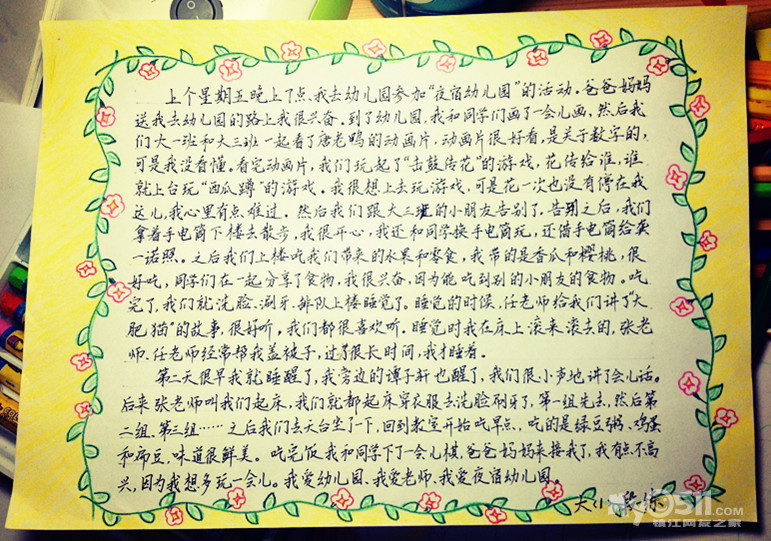 上个星期五晚上7点,我去幼儿园参加“夜宿幼儿园”的活动。爸爸妈妈
送我去幼儿园的路上我很兴奋。到了幼儿园,我和同学们画了一会儿画,然后我
们大一班和大三班一起看了唐老鸭的动画片,动画片很好看,是关于数字的,
可是我没看懂。看完动画片,我们玩起了“击鼓传花”的游戏,花传给谁,谁
就上台玩“西瓜蹲”的游戏。我很想上去玩游戏,可是花一次也没有停在我
这儿,我心里有点难过。然后我们跟大三班的小朋友告别了。告别之后,我们
拿着手电筒下楼去散步,我很开心,我还和同学换手电筒玩,还借手电筒给龚
一诺照。之后我们上楼吃我们带来的水果和零食,我带的是香瓜和樱桃,很
好吃,同学们在一起分享了食物,我很兴奋,因为能吃到别的小朋友的食物。吃
完了,我们就洗脸、涮牙、排队上楼睡觉了。睡觉的时候,任老师给我们讲了“大
肥猫”的故事,很好听,我们都很喜欢听。睡觉时我在床上滚来滚去的,张老
师、任老师经常帮我盖被子,过了很长时间,我才睡着。
第二天很早我就睡醒了,我旁边的谭子轩也醒了,我们很小声地讲了会儿话。
后来张老师叫我们起床,我们就都起床穿衣服去洗脸刷牙了,第一组先去,然后第
二组、第三组……之后我们去天台坐了一下,回到教室开始吃早点,吃的是绿豆粥、鸡蛋
和芸豆,味道很鲜美。吃完饭,我和同学下了一会儿棋,爸爸妈妈来接我了,我有点不高
兴,因为我想多玩一会儿。我爱幼儿园、我爱老师、我爱夜宿幼儿园。
大(1) 段
my0511.COM
镇江网友之家